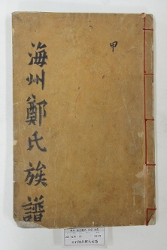 海州鄭氏族譜
甲